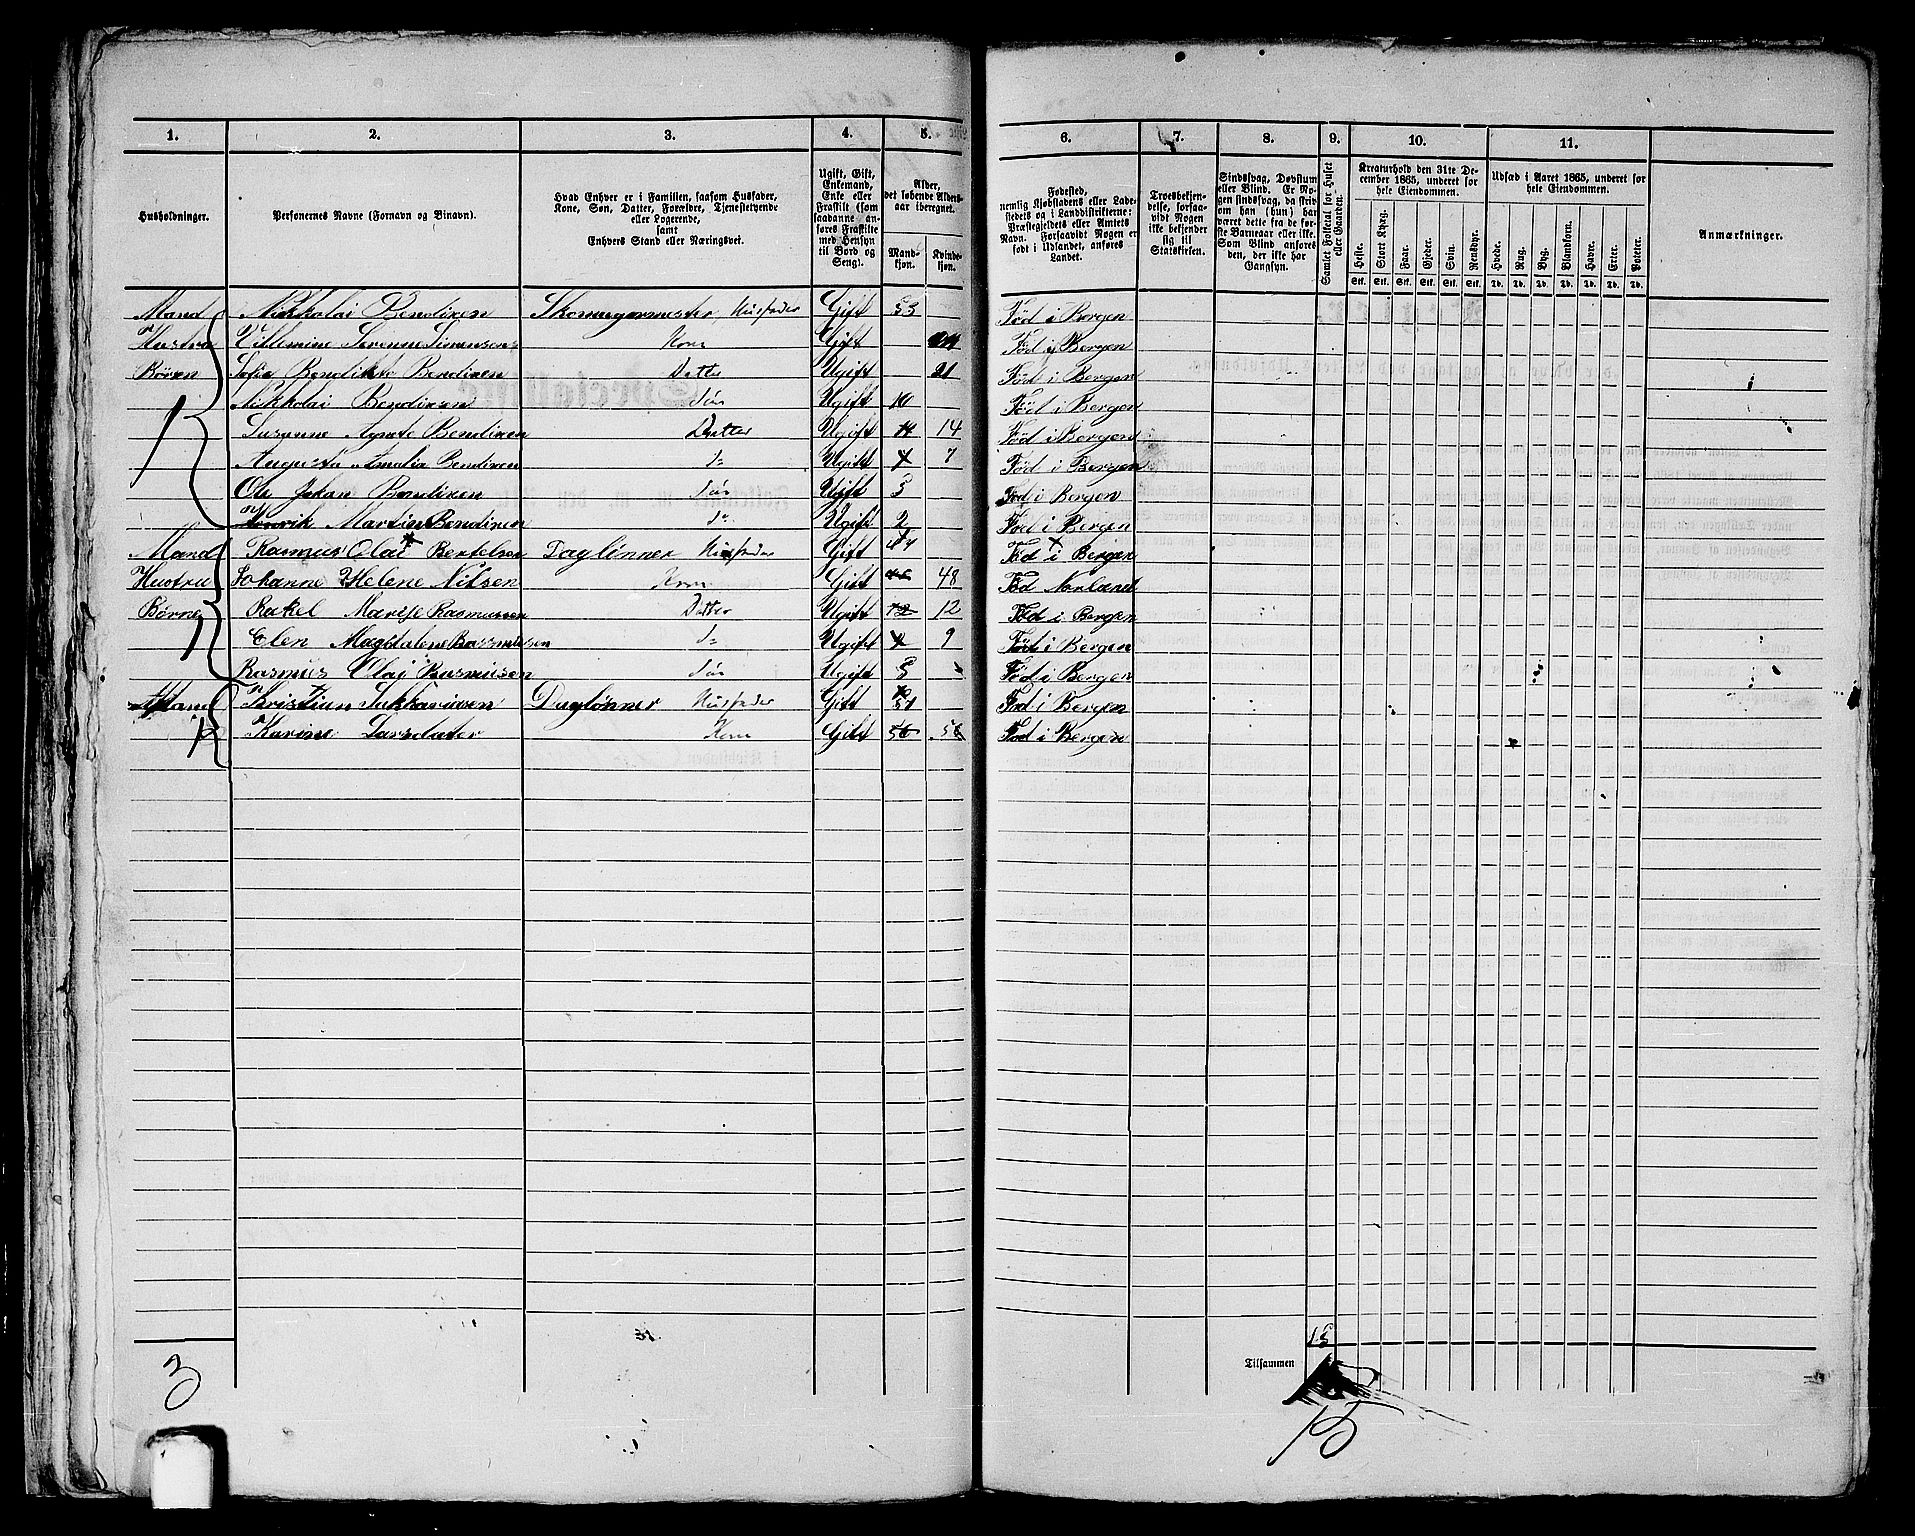 1. 2. 3. 4. 5. 6. 7. 8. 9. 10. 11.
Husholdninger.
Personernes Navne (Fornavn og Binavn).
Hvad Enhver er i Familien, saasom Husfader, Kone, Søn, Datter, Forældre, Tjenestetyende eller Logerende, samt Enhvers Stand eller Næringsvei.
Ugift, Gift, Enkemand, Enke eller Fraskilt (som saadanne anføres Fraskilte med Hensyn til Bord og Seng).
Alder, det løbende Aldersaar iberegnet.
Mandkjøn. Kvindekjøn.
Fødested, nemlig Kjøbstadens eller Ladestedets og i Landdistrikterne: Præstegjeldets eller Amtets Navn. Forsaavidt Nogen er født i Udlandet, anføres Landet.
Troesbekjendelse, forsaavidt Nogen ikke bekjender sig til Statskirken.
Sindssvag, Døvstum eller Blind. Er Nogen sindssvag, da skriv om han (hun) har været dette fra de første Barneaar eller ikke. Som Blind anføres den, der ikke har Gangsyn.
Samlet Folketal for Huset eller Gaarden.
Kreaturhold den 31te December 1865, underet for hele Eiendommen.
Heste. Stort Kvæg. Faar. Gjeder. Svin. Rensdyr.
Stk. Stk. Stk. Stk. Stk. Stk.
Udsæd i Aaret 1865, underet for hele Eiendommen.
Hvede. Rug. Byg. Blandkorn. Havre. Erter. Poteter.
Td. Td. Td. Td. Td. Td. Td.
Anmærkninger.
Mand Nikkolai Bendixen Skomagermester, Husfader Gift 53 Fød i Bergen
Hustru Villemine Serenne Simensen Kone Gift Fød i Bergen
Børen Sofie Bendikte Bendixen Datter Ugift 21 Fød i Bergen
Nikkolai Bendixen Søn Ugift 10 Fød i Bergen
Susanne Agnete Bendixen Datter Ugift 14 Fød i Bergen
Augusta Amalia Bendixen do Ugift 7 Fød i Bergen
Ole Johan Bendixen Søn Ugift 5 Fød i Bergen
Henrik Martin Bendixen do Ugift 2 Fød i Bergen
Mand Rasmus Olai Bertelsen Daglønner Husfader Gift 47 Fød i Bergen
Hustru Johanne Helene Nilsen Kone Gift 48 Fød Norland
Børne Rakel Marie Rasmussen Datter Ugift 12 Fød i Bergen
Elen Magdalene Rasmussen do Ugift 9 Fød i Bergen
Rasmus Olai Rasmussen Søn Ugift 5 Fød i Bergen
Mand Kristian Sakkariasen Daglønner Husfader Gift 51 Fød i Bergen
Karine Larsdater Kone Gift 56 56 Fød i Bergen
15
3
Tilsammen
15